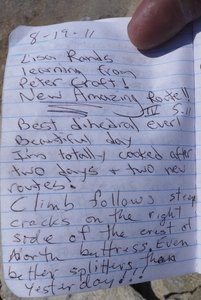 8-19-11
Lisa Rands
learning from
Peter Croft!
New Amazing Route!!
IV 5.11
Best dihedral ever!
Beautiful day
I'm totally cooked after
two days + two new
routes.
Climb follows steep
cracks on the right
side of the crest of
North buttress. Even
better splitters than
yesterday!!!